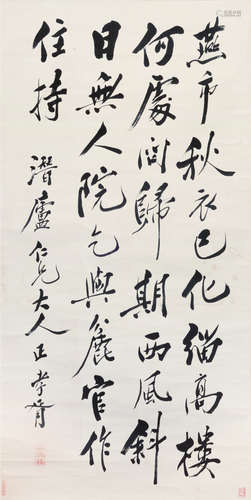 燕市秋衣已化緇高樓
何處問歸期西風斜
日無人院乞與麄官作
住持
潛廬仁兄大人正 孝胥